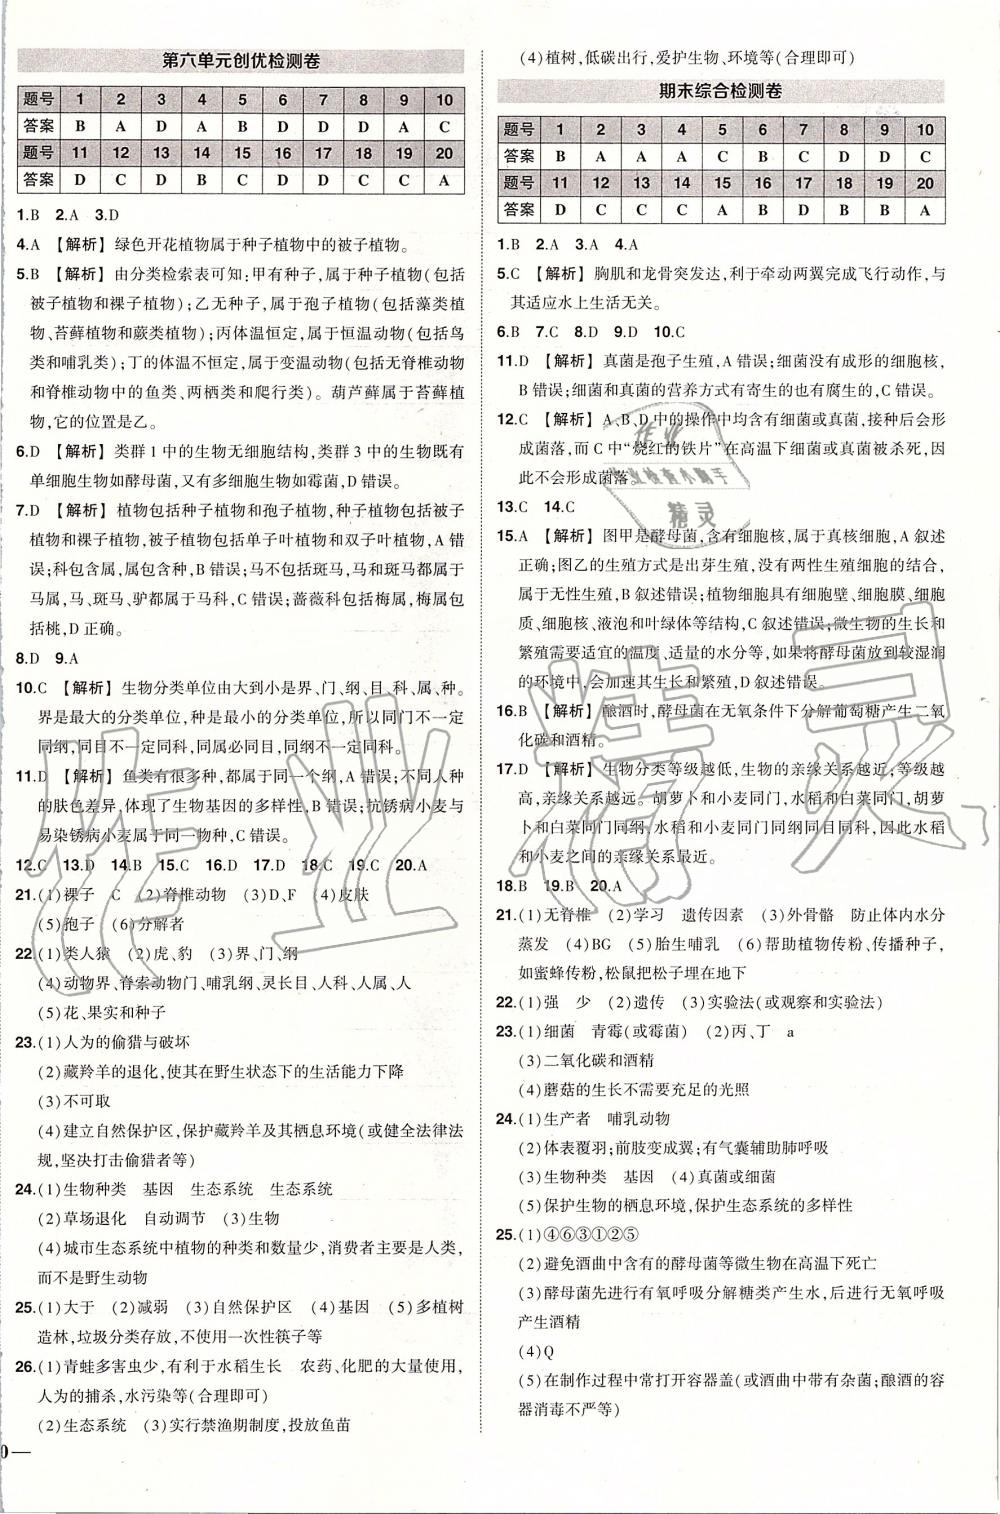 第六单元创优检测卷
题号 1 2 3 4 5 6 7 8 9 10
答案 B A D A B D D D A C
题号 11 12 13 14 15 16 17 18 19 20
答案 D C D B C D D C C A
1.B 2.A 3.D
4.A 【解析】绿色开花植物属于种子植物中的被子植物。
5.B 【解析】由分类检索表可知:甲有种子,属于种子植物(包括
被子植物和裸子植物);乙无种子,属于孢子植物(包括藻类植
物、苔藓植物和蕨类植物);丙体温恒定,属于恒温动物(包括鸟
类和哺乳类);丁的体温不恒定,属于变温动物(包括无脊椎动物
和脊椎动物中的鱼类、两栖类和爬行类)。葫芦藓属于苔藓植
物,它的位置是乙。
6.D 【解析】类群1中的生物无细胞结构,类群3中的生物既有
单细胞生物如酵母菌,又有多细胞生物如霉菌,D错误。
7.D 【解析】植物包括种子植物和孢子植物,种子植物包括被子
植物和裸子植物,被子植物包括单子叶植物和双子叶植物,A错
误;科包含属,属包含种,B错误;马不包括斑马,马和斑马都属于
马属,马、斑马、驴都属于马科,C错误;蔷薇科包括梅属,梅属包
括桃,D正确。
8.D 9.A
10.C 【解析】生物分类单位由大到小是界、门、纲、目、科、属、种。
界是最大的分类单位,种是最小的分类单位,所以同门不一定
同纲,同目不一定同科,同属必同目,同纲不一定同科。
11.D 【解析】鱼类有很多种,都属于同一个纲,A错误;不同人种
的肤色差异,体现了生物基因的多样性,B错误;抗锈病小麦与
易染锈病小麦属于同一物种,C错误。
12.C 13.D 14.B 15.C 16.D 17.D 18.C 19.C 20.A
21.(1)裸子 C (2)脊椎动物 (3)D、F (4)皮肤
(5)孢子 (6)分解者
22.(1)类人猿 (2)虎、豹 (3)界、门、纲
(4)动物界、脊索动物门、哺乳纲、灵长目、人科、人属、人
(5)花、果实和种子
23.(1)人为的偷猎与破坏
(2)藏羚羊的退化,使其在野生状态下的生活能力下降
(3)不可取
(4)建立自然保护区,保护藏羚羊及其栖息环境(或健全法律法
规,坚决打击偷猎者等)
24.(1)生物种类 基因 生态系统 生态系统
(2)草场退化 自动调节 (3)生物
(4)城市生态系统中植物的种类和数量少,消费者主要是人类,
而不是野生动物
25.(1)大于 (2)减弱 (3)自然保护区 (4)基因 (5)多植树
造林,垃圾分类存放,不使用一次性筷子等
26.(1)青蛙多害虫少,有利于水稻生长 农药、化肥的大量使用,
人为的捕杀,水污染等(合理即可)
(2)生态系统 (3)实行禁渔期制度,投放鱼苗
(4)植树,低碳出行,爱护生物、环境等(合理即可)
期末综合检测卷
题号 1 2 3 4 5 6 7 8 9 10
答案 B A A A C B C D D C
题号 11 12 13 14 15 16 17 18 19 20
答案 D C C C A B D B B A
1.B 2.A 3.A 4.A
5.C 【解析】胸肌和龙骨突发达,利于牵动两翼完成飞行动作,与
其适应水上生活无关。
6.B 7.C 8.D 9.D 10.C
11.D 【解析】真菌是孢子生殖,A错误;细菌没有成形的细胞核,
B错误;细菌和真菌的营养方式有寄生的也有腐生的,C错误。
12.C 【解析】A、B、D中的操作中均含有细菌或真菌,接种后会形
成菌落,而C中“烧红的铁片”在高温下细菌或真菌被杀死,因
此不会形成菌落。
13.C 14.C
15.A 【解析】图甲是酵母菌,含有细胞核,属于真核细胞,A叙述
正确;图乙的生殖方式是出芽生殖,没有两性生殖细胞的结合,
属于无性生殖,B叙述错误;植物细胞具有细胞壁、细胞膜、细胞
质、细胞核、液泡和叶绿体等结构,C叙述错误;微生物的生长和
繁殖需要适宜的温度、适量的水分等,如果将酵母菌放到较湿润
的环境中,会加速其生长和繁殖,D叙述错误。
16.B 【解析】酿酒时,酵母菌在无氧条件下分解葡萄糖产生二氧
化碳和酒精。
17.D 【解析】生物分类等级越低,生物的亲缘关系越近;等级越
高,亲缘关系越远。胡萝卜和小麦同门,水稻和白菜同门,胡萝
卜和白菜同门同纲,水稻和小麦同门同纲同目同科,因此水稻
和小麦之间的亲缘关系最近。
18.B 19.B 20.A
21.(1)无脊椎 (2)学习 遗传因素 (3)外骨骼 防止体内水分
蒸发 (4)BG (5)胎生哺乳 (6)帮助植物传粉、传播种子,
如蜜蜂传粉,松鼠把松子埋在地下
22.(1)强 少 (2)遗传 (3)实验法(或观察和实验法)
23.(1)细菌 青霉(或霉菌) (2)丙、丁 a
(3)二氧化碳和酒精
(4)蘑菇的生长不需要充足的光照
24.(1)生产者 哺乳动物
(2)体表覆羽;前肢变成翼;有气囊辅助肺呼吸
(3)生物种类 基因 (4)真菌或细菌
(5)保护生物的栖息环境,保护生态系统的多样性
25.(1)④⑥③①②⑤
(2)避免酒曲中含有的酵母菌等微生物在高温下死亡
(3)酵母菌先进行有氧呼吸分解糖类产生水,后进行无氧呼吸
产生酒精
(4)Q
(5)在制作过程中常打开容器盖(或酒曲中带有杂菌;酿酒的容
器消毒不严等)
0 —
作业精灵